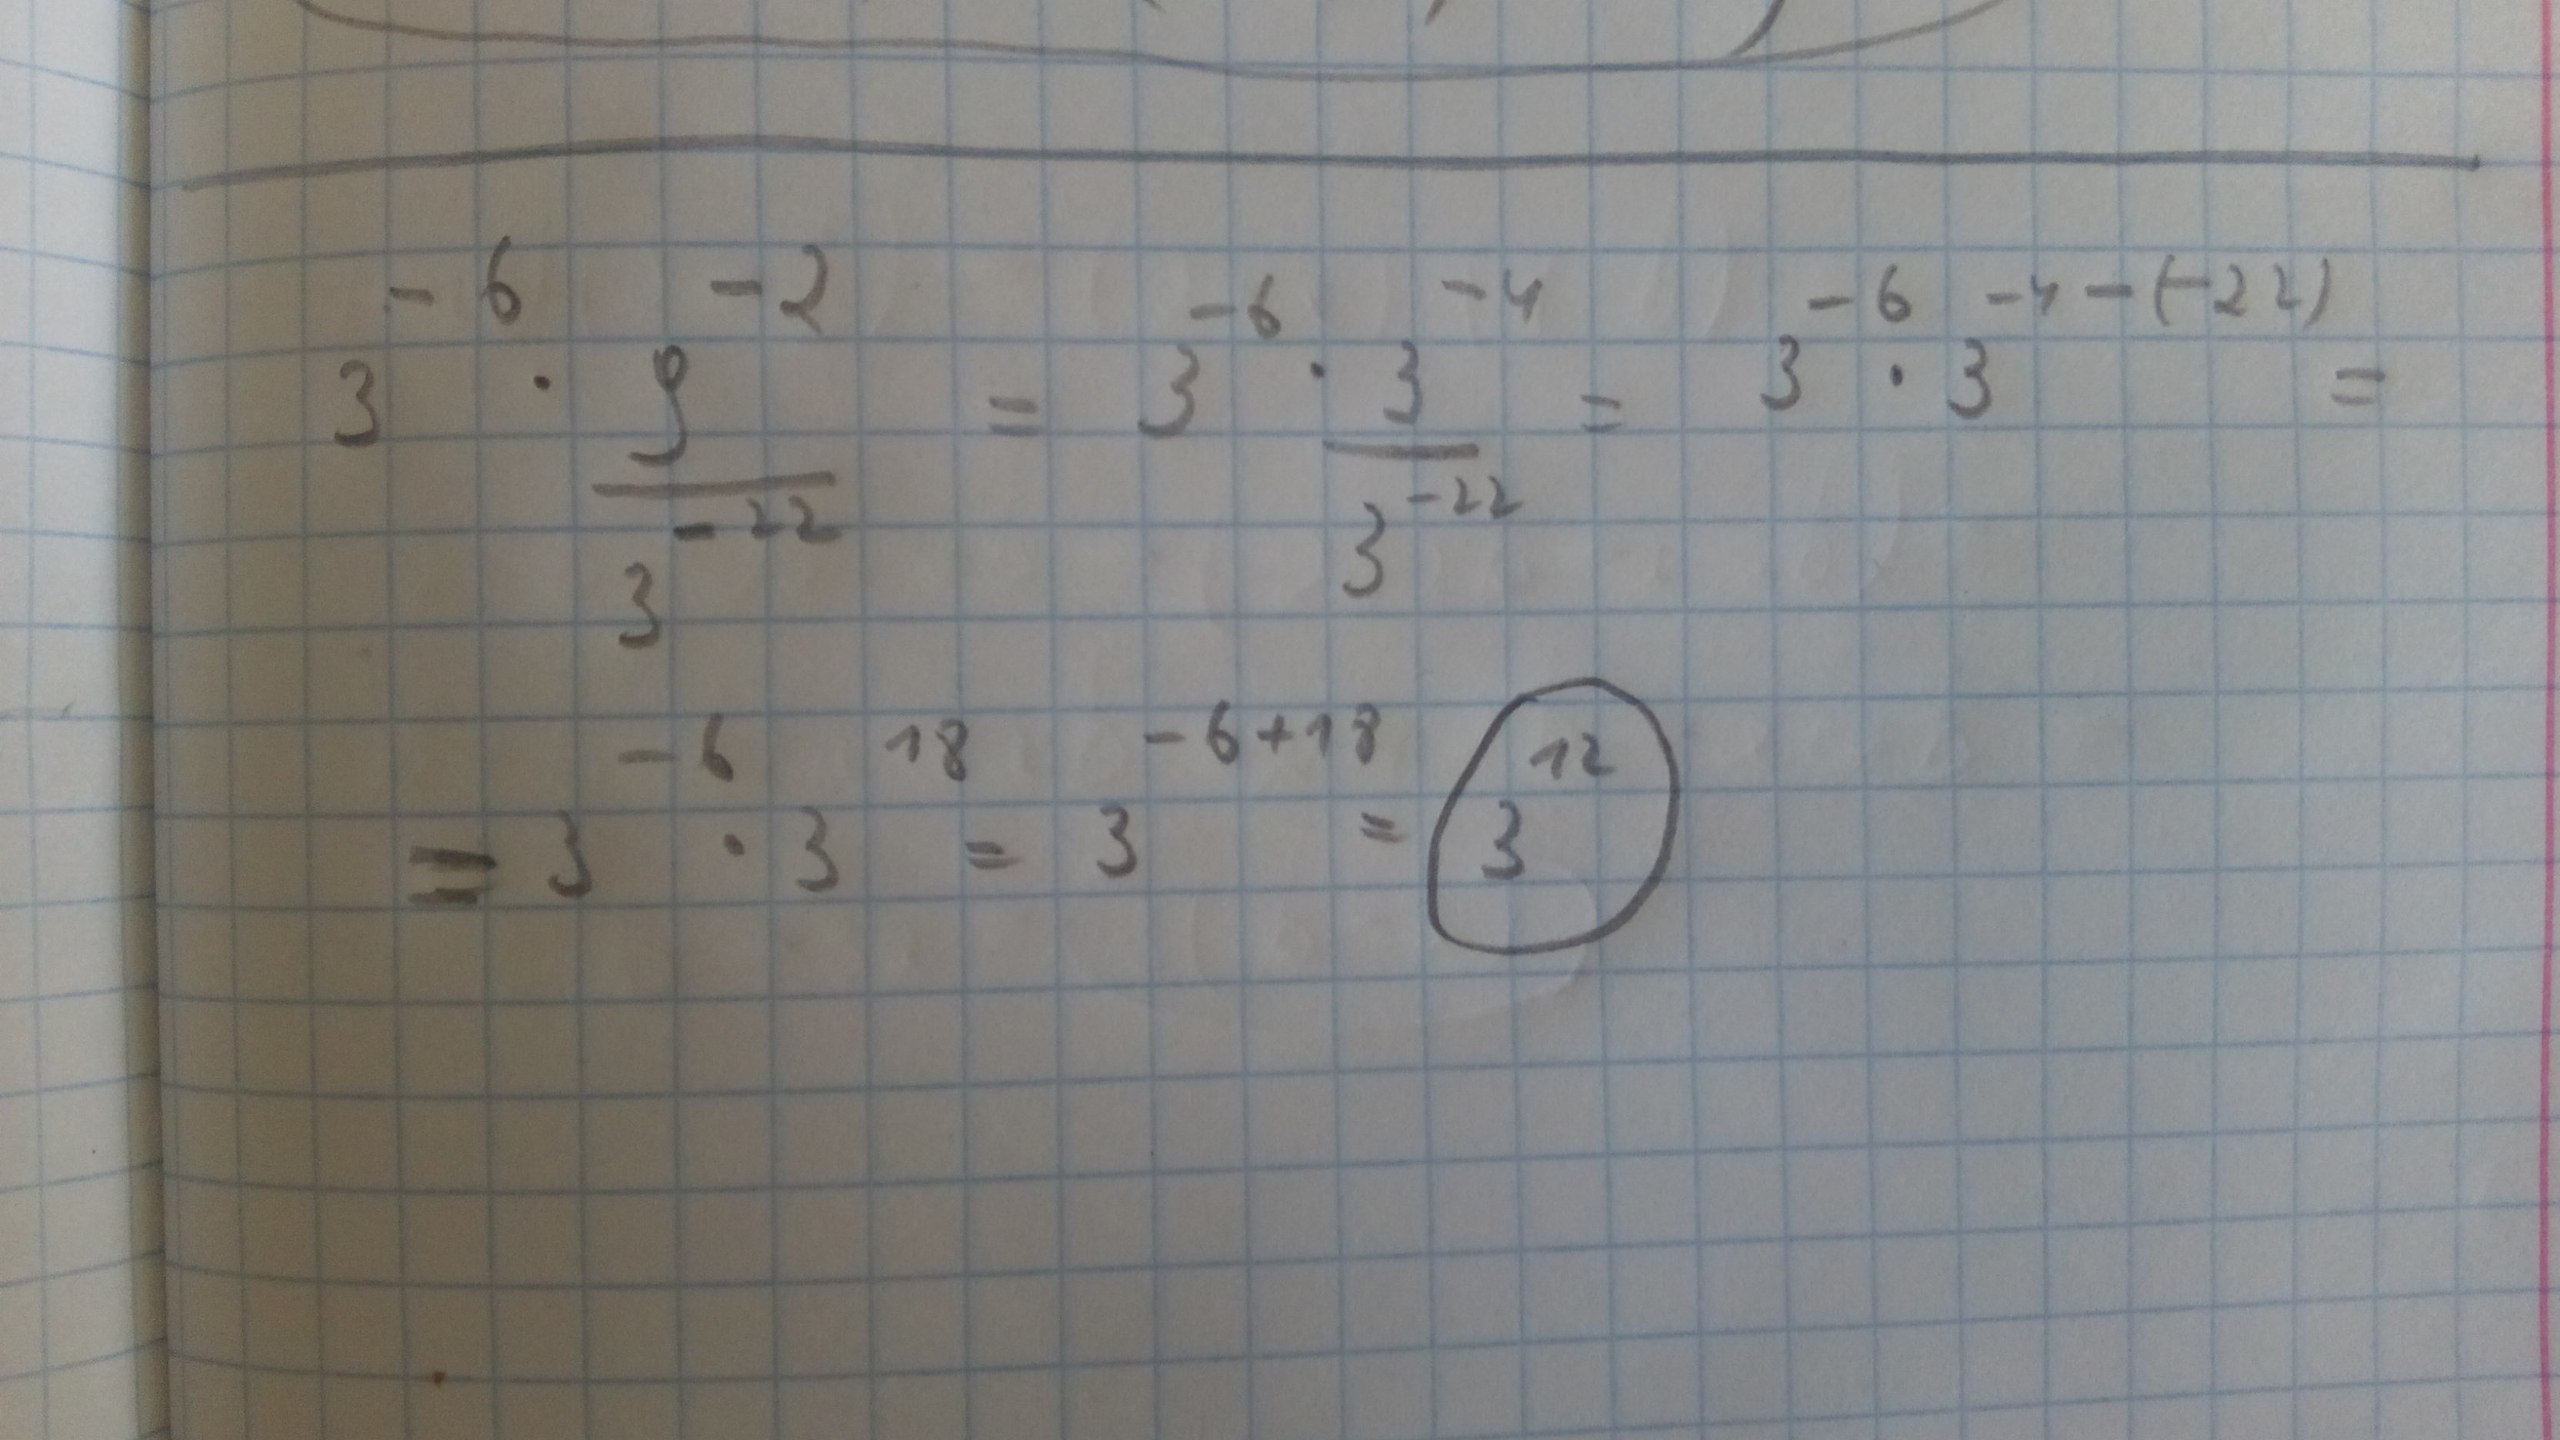 3^{-6} · \frac{9^{-2}}{3^{-22}} = 3^{-6} · \frac{3^{-4}}{3^{-22}} = 3^{-6} · 3^{-4-(-22)} =
= 3^{-6} · 3^{18} = 3^{-6+18} = 3^{12}